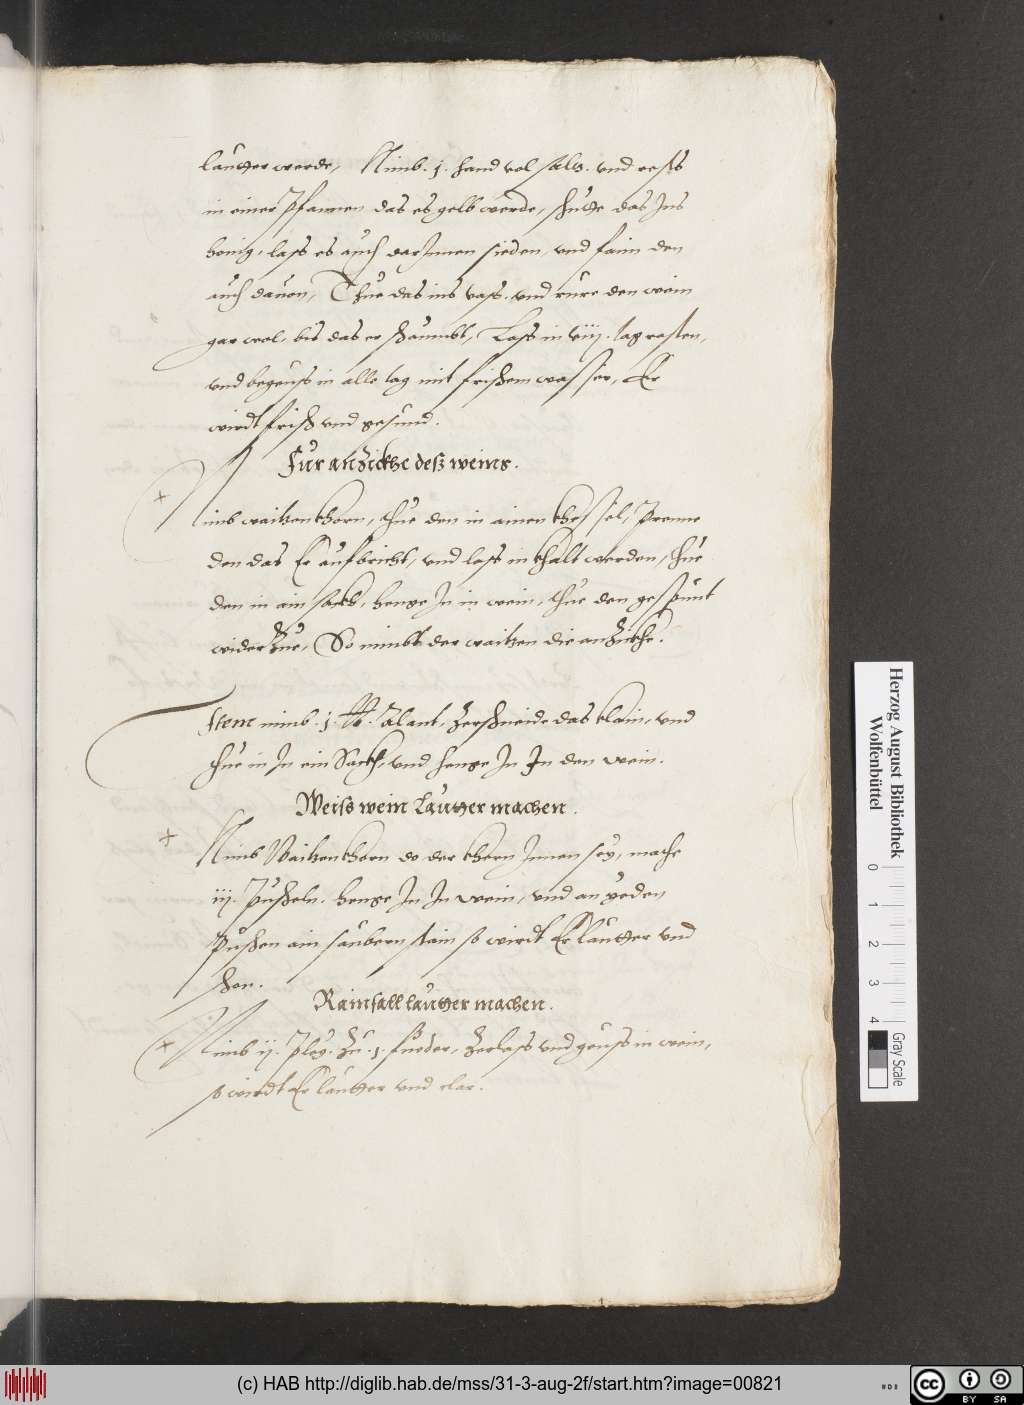 lautter werde, Nimb .1. hand vol saltz. vnd resß
in einer Pfannen das es gelb werde, schutte das Ins
honig, lass es auch darInnen sieden, vnd faim den
auch dauon, Thue das ins vass. vnd rure den wein
gar wol, bis das er schaumbt, Lass in viij. tag rasten,
vnd begeuss in alle tag mit frischem wasser, Er
wirdt frisch vnd gesund.
Fur anzickhe desz weins.
Nimb waitzen khorn, thue den in ainen khessel, Prenne
den das Er aufbricht, vnd lass in khalt werden, thue
den in ain sackh, henge In in wein, thue den gespunt
wider zue, So nimbt der waitzen die anzickhe.
Item nimb .1. lb. Alant, zerschneide das klain, vnd
thue in In ein Sackh, vnd henge In In den wein.
Weiss wein lautter machen.
Nimb Waitzen khorn do der khern Innen sey, mache
iij. Puscheln. henge In In wein, vnd an yeden
Puschen ain saubern stain so wirdt Er lautter vnd
schon.
Rainfall lautter machen.
Nimb ij. Pley. zu .1. fueder, zerlass vnd geuss in wein,
so wirdt Er lautter vnd clar.
Herzog August Bibliothek
Wolfenbüttel
0 1 2 3 4
Gray Scale
(c) HAB http://diglib.hab.de/mss/31-3-aug-2f/start.htm?image=00821
cc BY SA